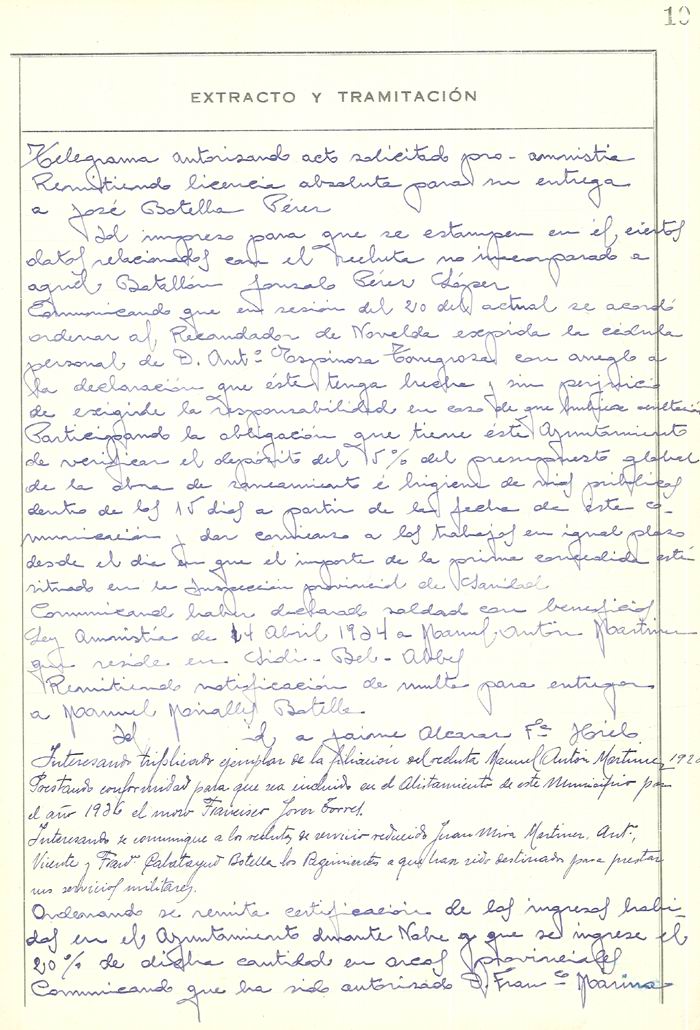 10
EXTRACTO Y TRAMITACIÓN
Telegrama autorizando acto solicitado pro-amnistia
Remitiendo licencia absoluta para su entrega
a José Botella Pérez
Id impreso para que se estampen en él, ciertos
datos relacionados con el recluta no incorporado a
aquél Batallón Gonzalo Pérez López
Comunicando que en sesión del 20 del actual se acordó
ordenar al Recaudador de Novelda expida la cédula
personal de D. Antº Espinosa Torregrosa con arreglo a
la declaración que éste tenga hecha y sin perjuicio
de exigirle la responsabilidad en caso de que hubiese ocultación
Participando la obligación que tiene éste Ayuntamiento
de verificar el depósito del 15% del presupuesto global
de la obra de saneamiento é higiene de vias públicas
dentro de los 15 dias a partir de la fecha de este co-
municación y dar comienzo a los trabajos en igual plazo
desde el dia en que el importe de la prima concedida esté
situado en la Inspección provincial de Sanidad
Comunicand haber declarado soldad con beneficios
Ley Amnistia de 24 Abril 1934 a Manuel Antón Martinez
que reside en Sidi-Bel-Abbes
Remitiendo notificación de multa para entregar
a Manuel Botella
Id id a Jaime Alcaraz
Interesando triplicado ejemplar de la filiación del recluta Manuel Antón Martinez, 192
Prestando conformidad para que sea incluido en el Alistamiento de este Municipio para
el año 1936 el mozo Francisco Jover Torres.
Interesando se comunique a los reclutas de servicio reducido Juan Mira Martinez, Antº,
Vicente y Franº Calatayud Botella los Regimientos a que han sido destinados para prestar
sus servicios militares.
Ordenando se remita certificación de los ingresos habi-
dos en el Ayuntamiento durante Nobe y que se ingrese el
20% de dicha cantidad en arcas provinciales
Comunicando que ha sido autorizado D. Franco Marina